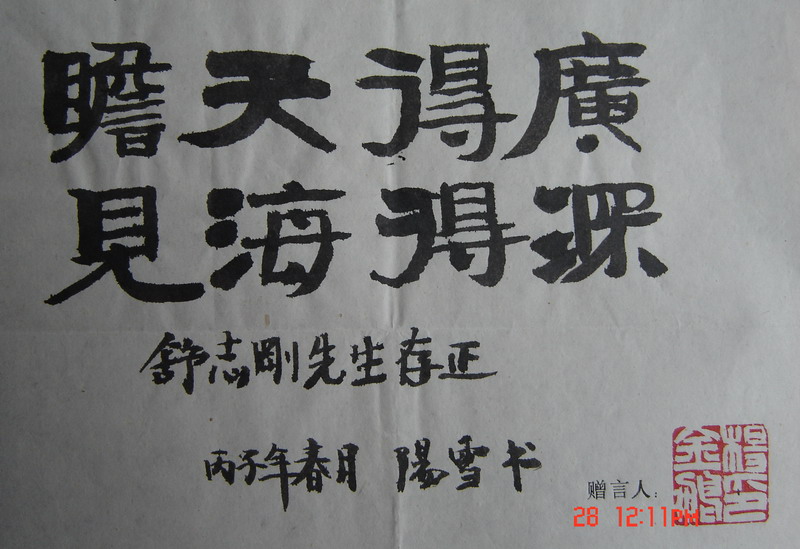 瞻天得廣
見海得深
舒志剛先生存正
丙子年春月 陽雪书
赠言人:
28 12:11PM